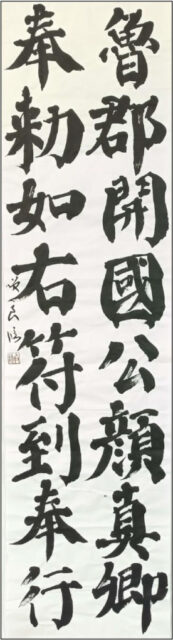 魯郡開國公顔真卿
奉勅如右符到奉行